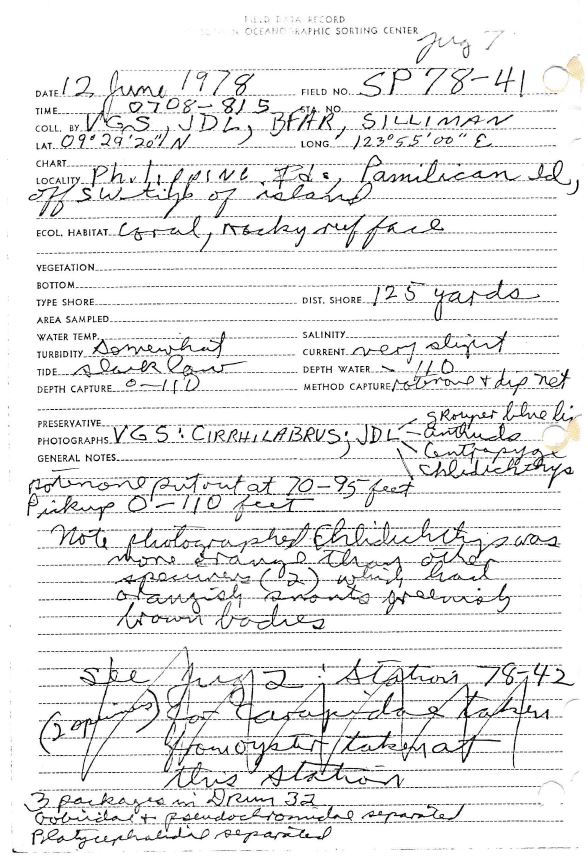 FIELD DATA RECORD
OCEANOGRAPHIC SORTING CENTER
Jug 7
DATE 12 June 1978 FIELD NO. SP 78-41
TIME 0708-815 STA. NO.
COLL. BY VGS, JDL, BFAR, SILLIMAN
LAT. 09°29'20"N LONG. 123°55'00" E
CHART
LOCALITY Philippine Ids, Pamilican Id,
off SW tip of island
ECOL. HABITAT Coral, rocky reef face
VEGETATION
BOTTOM
TYPE SHORE DIST. SHORE 125 yards
AREA SAMPLED
WATER TEMP. SALINITY
TURBIDITY somewhat CURRENT very slight
TIDE slack low DEPTH WATER - 110
DEPTH CAPTURE 0-110 METHOD CAPTURE rotenone + dip net
PRESERVATIVE grouper blue
PHOTOGRAPHS VGS: CIRRHILABRUS; JDL - anthiids
GENERAL NOTES Centropyge
Ehlidichthys
rotenone put out at 70-95 feet
Pickup 0-110 feet
Note photographed Ehlidichthys was
more orange than other
specimens (2) which had
orangish snouts greenish
brown bodies
See Jug 2: Station 78-42
(2 specimens) for Carapidae taken
from oyster taken at
this station
3 packages in Drum 32
Gobiidae + pseudochromidae separated
Platycephalidae separated